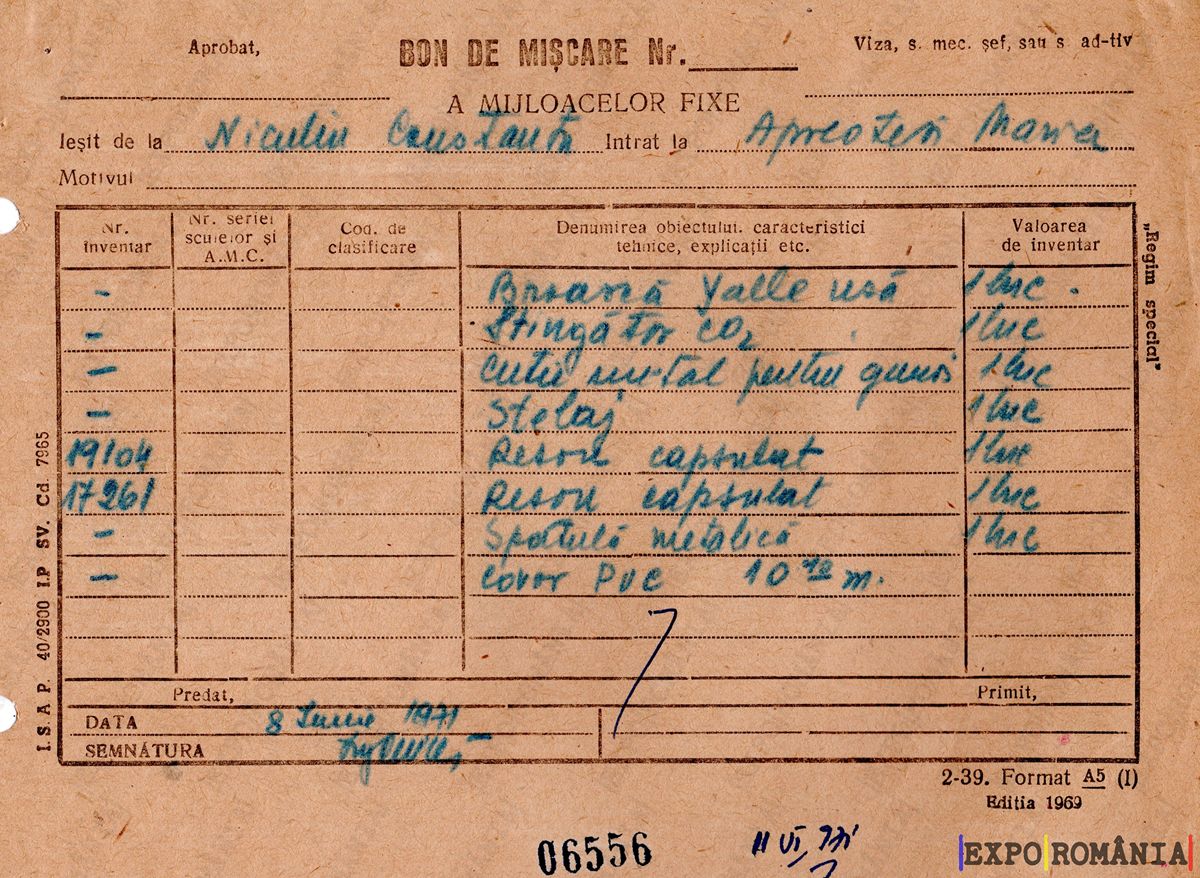 Aprobat,
BON DE MIȘCARE Nr.
Viza, s. mec. șef, sau s. ad-tiv
A MIJLOACELOR FIXE
Ieșit de la Niculiu Constanța Intrat la Apreotesi Maria
Motivul
Nr. inventar
Nr. seriei sculelor și A.M.C.
Cod. de clasificare
Denumirea obiectului, caracteristici tehnice, explicații etc.
Valoarea de inventar
- Broască Yalle usă 1 buc.
- Stingător CO2 1 buc
- Cutie metal pentru gunoi 1 buc
- Stelaj 1 buc
19104 Resou capsulat 1 buc
17261 Resou capsulat 1 buc
- Spatulă metalică 1 buc
- Covor PVC 10 m.
Predat, Primit,
DATA 8 Iunie 1971
SEMNĂTURA
2-39. Format A5 (I)
Editia 1969
I.S.A P. 40/2900 I.P SV. Cd. 7965
„Regim special"
06556
11 VI, 971
EXPO ROMÂNIA